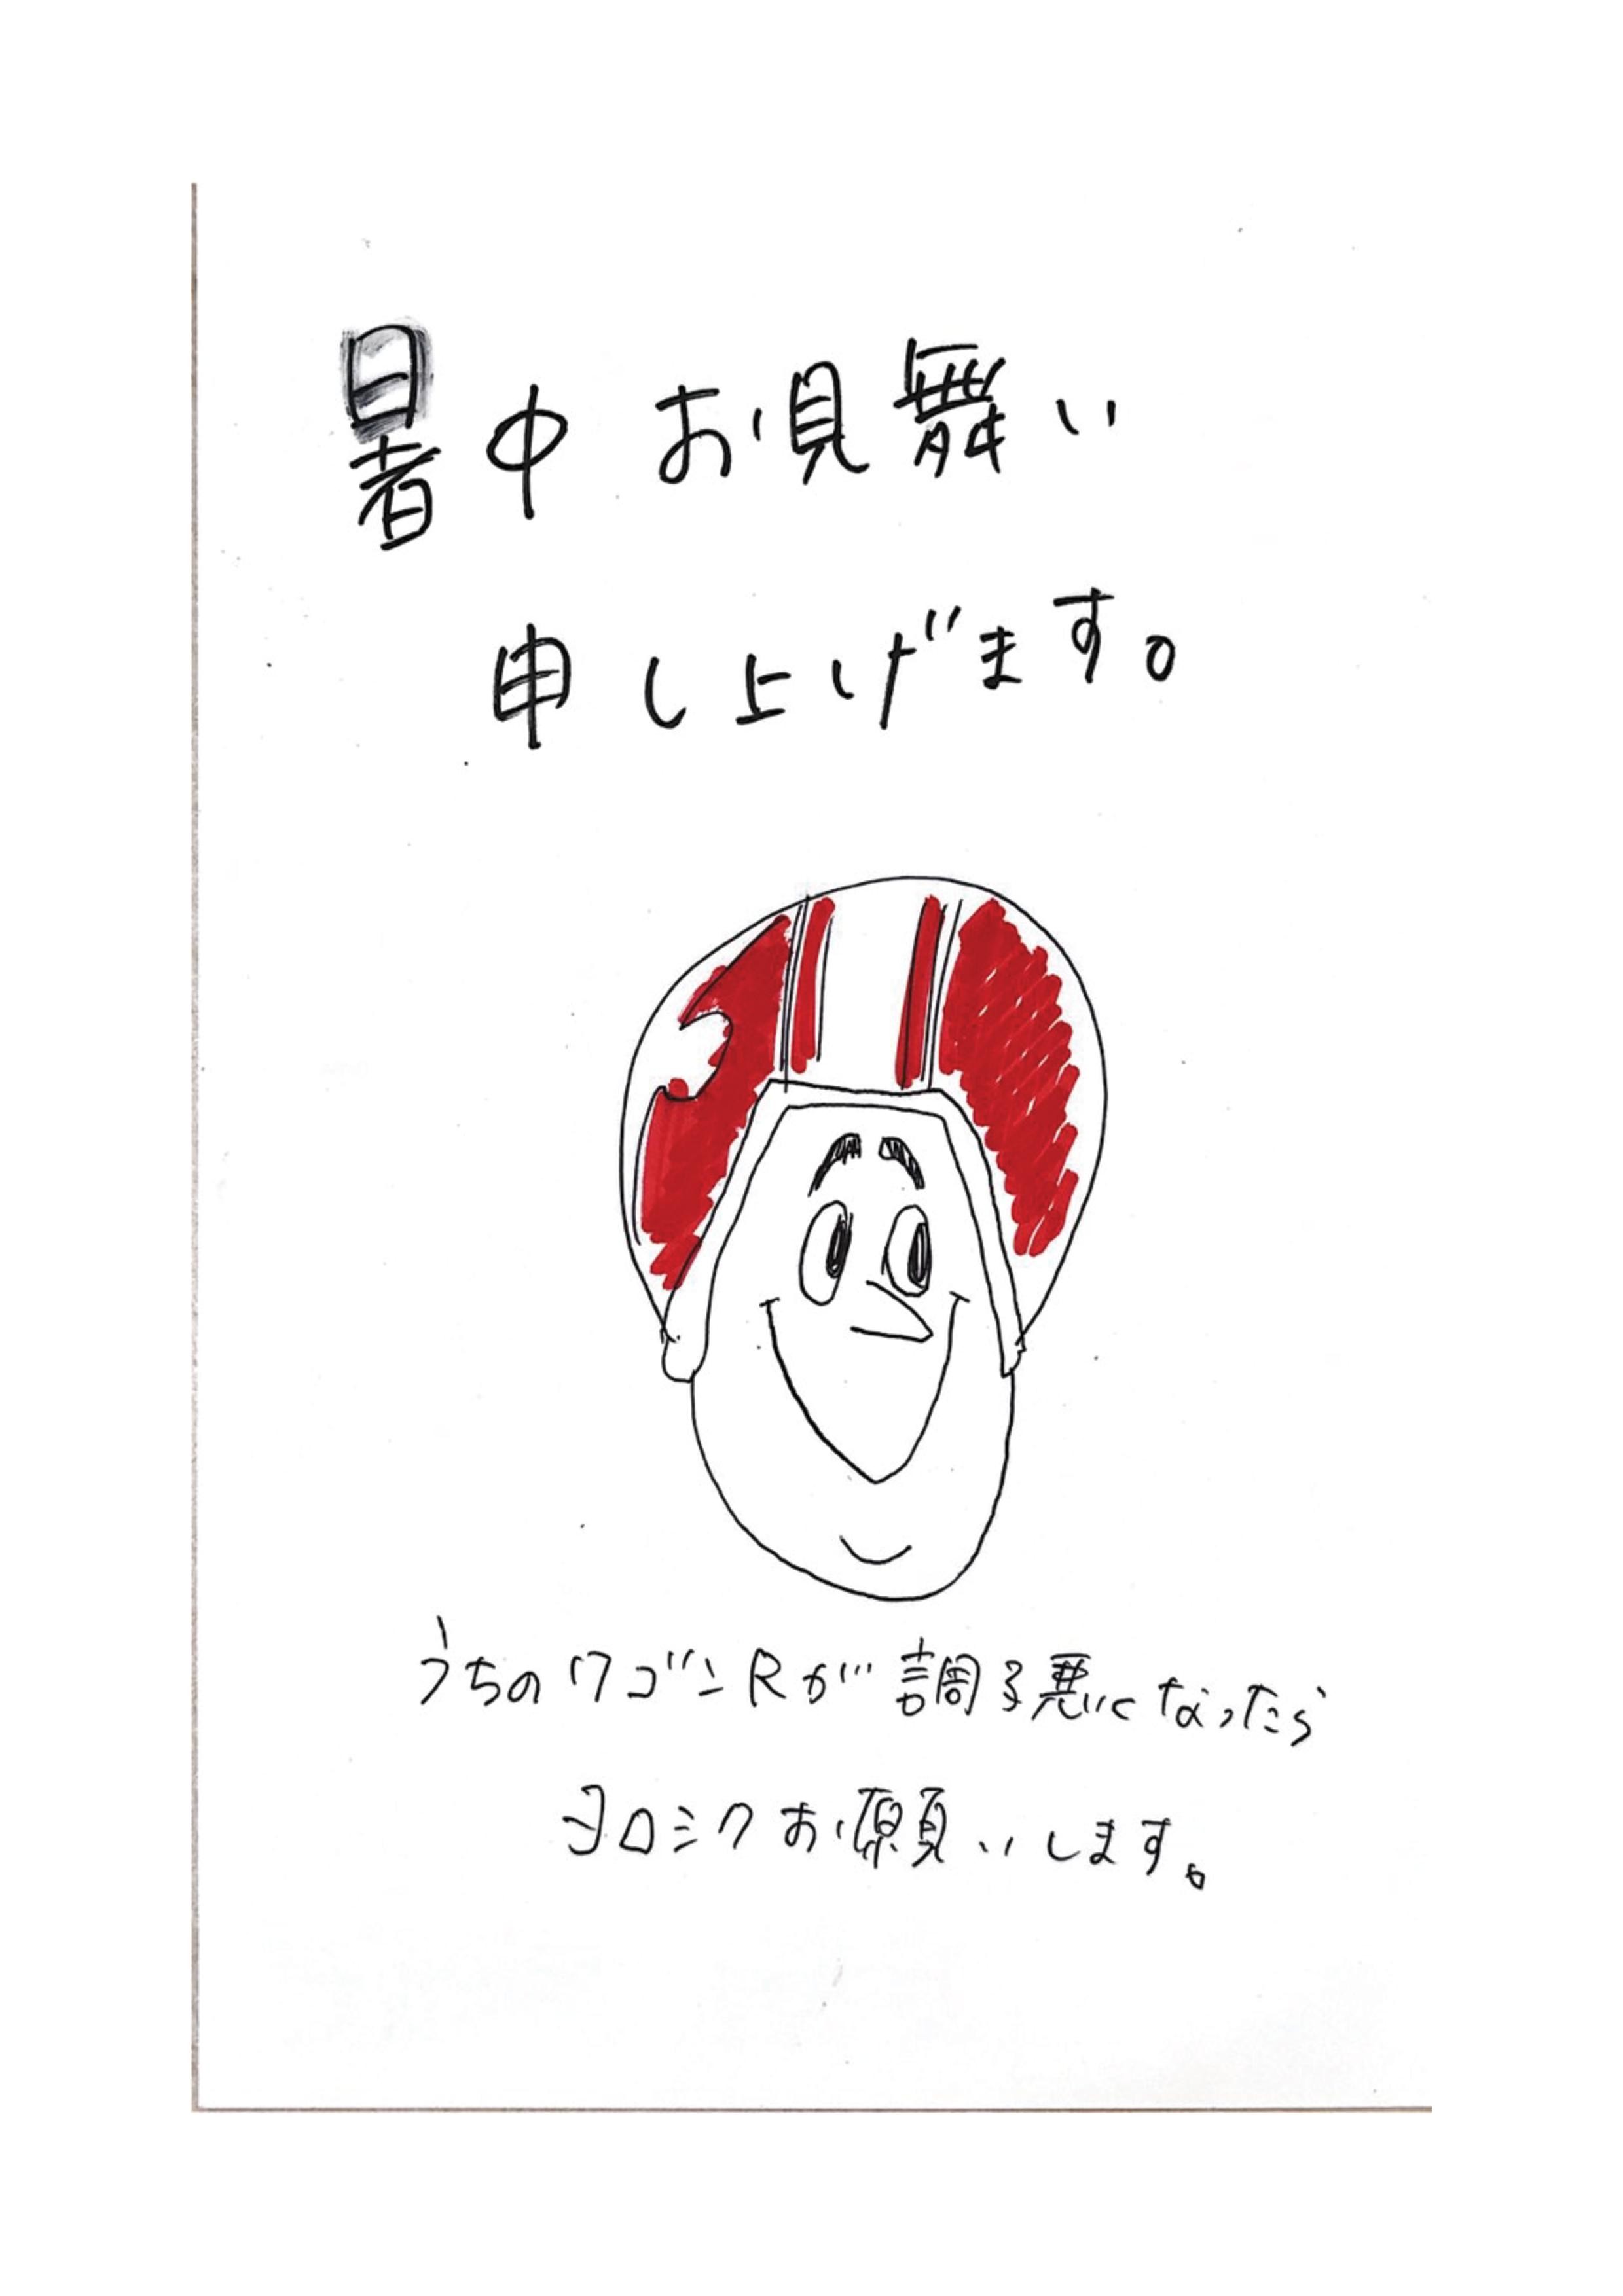 暑中お見舞い
申し上げます。
うちのワゴンRが調子悪くなったら
ヨロシクお願いします。